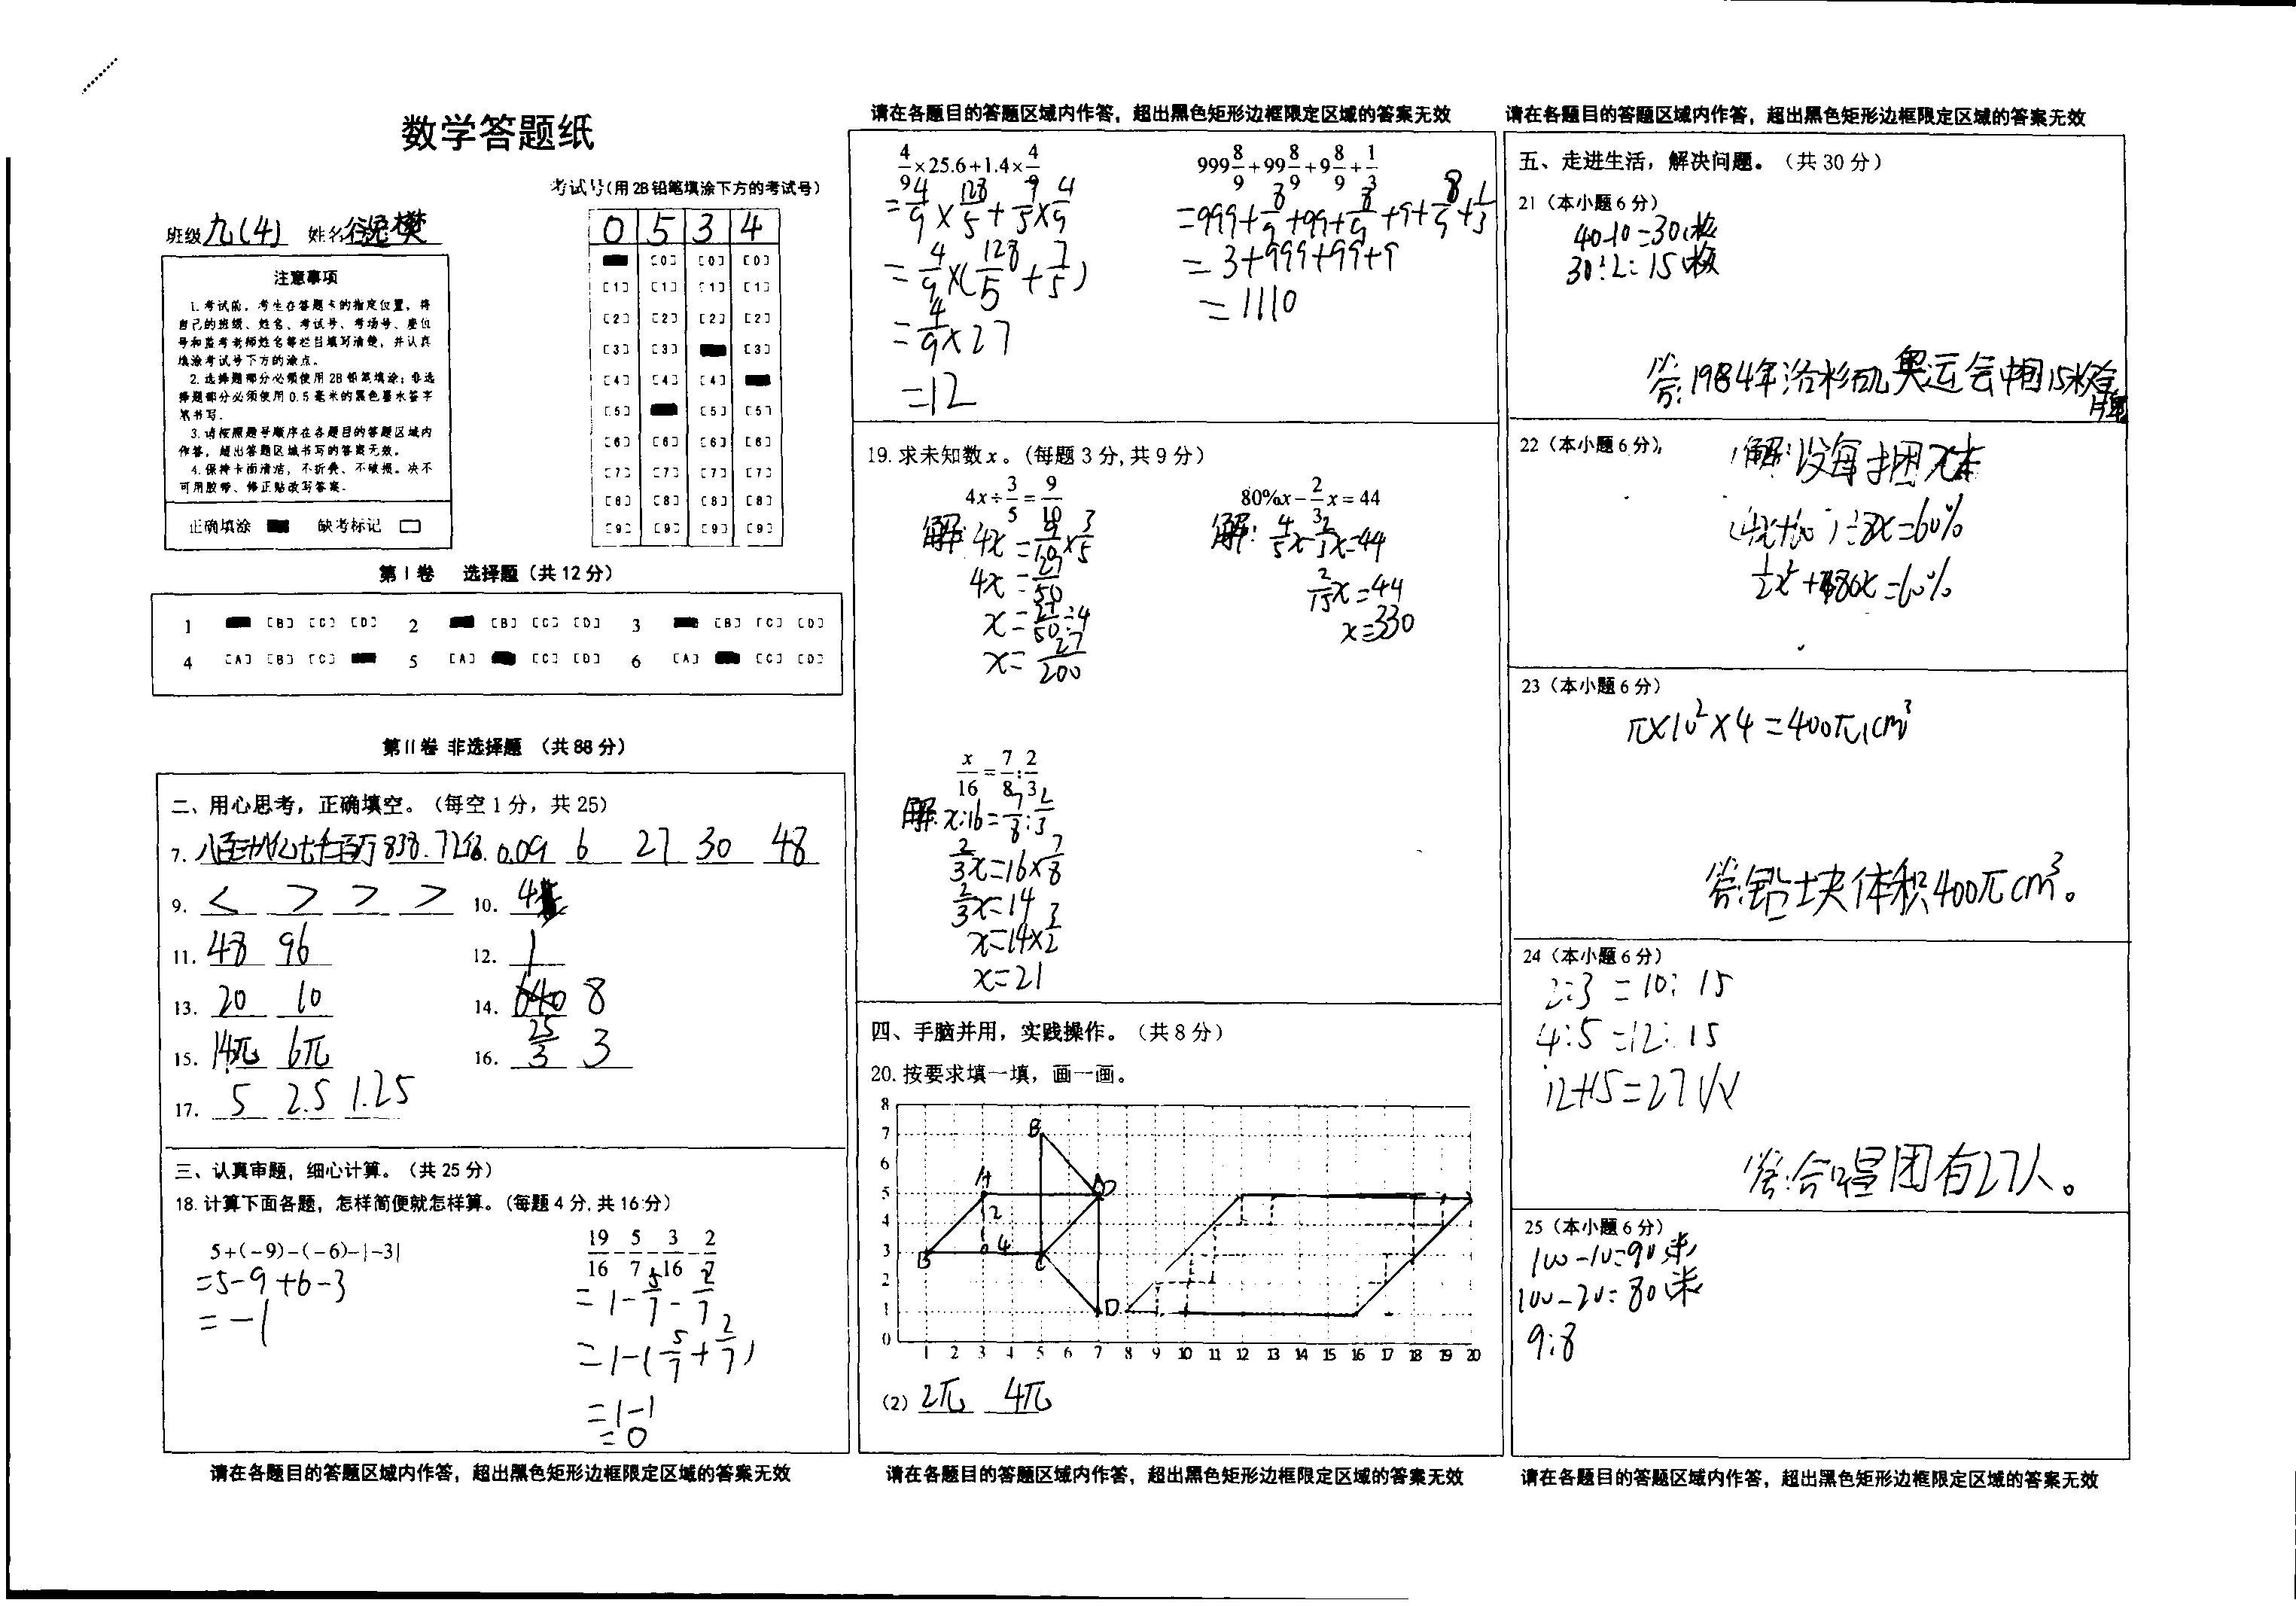 数学答题纸
考试号(用2B铅笔填涂下方的考试号)
班级 九(4) 姓名
0 5 3 4
注意事项
1.考试前,考生在答题卡的指定位置,将
自己的班级、姓名、考试号、考场号、座位
号和监考老师姓名等栏目填写清楚,并认真
填涂考试号下方的涂点。
2.选择题部分必须使用2B铅笔填涂;非选
择题部分必须使用0.5毫米的黑色墨水签字
笔书写.
3.请按照题号顺序在各题目的答题区域内
作答,超出答题区域书写的答案无效。
4.保持卡面清洁,不折叠、不破损。决不
可用胶带、修正贴改写答案.
正确填涂 缺考标记
[0] [0] [0]
[1] [1] [1] [1]
[2] [2] [2] [2]
[3] [3] [3]
[4] [4] [4]
[5] [5] [5]
[6] [6] [6] [6]
[7] [7] [7] [7]
[8] [8] [8] [8]
[9] [9] [9] [9]
第I卷 选择题(共12分)
1 [B] [C] [D] 2 [B] [C] [D] 3 [B] [C] [D]
4 [A] [B] [C] 5 [A] [C] [D] 6 [A] [C] [D]
第II卷 非选择题 (共88分)
二、用心思考,正确填空。(每空1分,共25)
7. 0.09 6 27 30 48
9. < > > > 10. 4
11. 48 96 12. 1
13. 20 10 14. 8
15. 14π 6π 16. 25/3 3
17. 5 2.5 1.25
三、认真审题,细心计算。(共25分)
18.计算下面各题,怎样简便就怎样算。(每题4分,共16分)
5+(-9)-(-6)-|-3|
=5-9+6-3
=-1
19/16-5/7-3/16-2/7
=1-5/7-2/7
=1-(5/7+2/7)
=1-1
=0
请在各题目的答题区域内作答,超出黑色矩形边框限定区域的答案无效
请在各题目的答题区域内作答,超出黑色矩形边框限定区域的答案无效
4/9×25.6+1.4×4/9
=4/9×128/5+7/5×4/9
=4/9×(128/5+7/5)
=4/9×27
=12
999 8/9+99 8/9+9 8/9+1/3
=999+8/9+99+8/9+9+8/9+1/3
=3+999+99+9
=1110
19.求未知数x。(每题3分,共9分)
4x÷3/5=9/10
解:4x=9/10×3/5
4x=27/50
x=27/50÷4
x=27/200
80%x-2/3x=44
解:4/5x-2/3x=44
2/15x=44
x=330
x/16=7/8:2/3
解:x:16=7/8:2/3
2/3x=16×7/8
2/3x=14
x=14×3/2
x=21
四、手脑并用,实践操作。(共8分)
20.按要求填一填,画一画。
8
7 B
6
5 A D
4 2
3 B 4 C
2
1 D
0
1 2 3 4 5 6 7 8 9 10 11 12 13 14 15 16 17 18 19 20
(2) 2π 4π
请在各题目的答题区域内作答,超出黑色矩形边框限定区域的答案无效
请在各题目的答题区域内作答,超出黑色矩形边框限定区域的答案无效
五、走进生活,解决问题。(共30分)
21(本小题6分)
40-10=30(枚)
30÷2=15(枚)
答:1984年洛杉矶奥运会中国15枚金牌
22(本小题6分)
解:设每捆x本
÷8x=60%
=60%
23(本小题6分)
π×10²×4=400π(cm³)
答:铅块体积400πcm³。
24(本小题6分)
2:3=10:15
4:5=12:15
12+15=27(人)
答:合唱团有27人。
25(本小题6分)
100-10=90(米)
100-20=80(米)
9:8
请在各题目的答题区域内作答,超出黑色矩形边框限定区域的答案无效